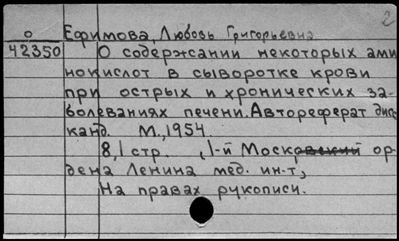 2
о Ефимова, Любовь Григорьевна
42350 О содержании некоторых ами
нокислот в сыворотке крови
при острых и хронических за-
болеваниях печени. Автореферат дисс.
канд. М., 1954.
8,1 стр. , 1-й Московский ор-
дена Ленина мед. ин-т,
На правах рукописи.